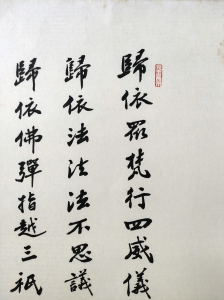 歸依眾梵行四威儀
歸依法法法不思議
歸依佛彈指越三祇